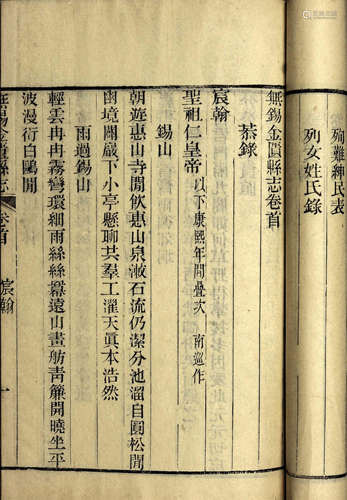 殉難紳民表
列女姓氏錄
無錫金匱縣志卷首
恭錄
宸翰
聖祖仁皇帝 以下康熙年間疊次 南巡作
錫山
朝遊惠山寺閒飲惠山泉漱石流仍潔分池溜自圓松間
幽境闢巖下小亭懸聊共羣工濯天眞本浩然
雨過錫山
輕雲冉冉霧彎環細雨絲絲羃遠山畫舫青簾開曉坐平
波漫衍白鷗閒
無錫金匱縣志 卷首 宸翰 一